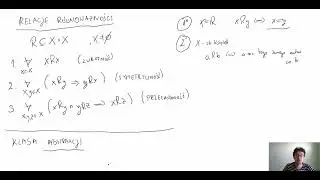 RELACJE RÓWNOWAŻNOŚCI
R ⊂ X × X , X ≠ ∅
1. ∀ x∈X xRx (ZWROTNOŚĆ)
2. ∀ x,y∈X (xRy ⇒ yRx) (SYMETRYCZNOŚĆ)
3. ∀ x,y,z∈X (xRy ∧ yRz ⇒ xRz) (PRZECHODNIOŚĆ)
KLASA ABSTRAKCJI
X=ℝ xRy ⟺ x=y
2 X
aRb
a, b